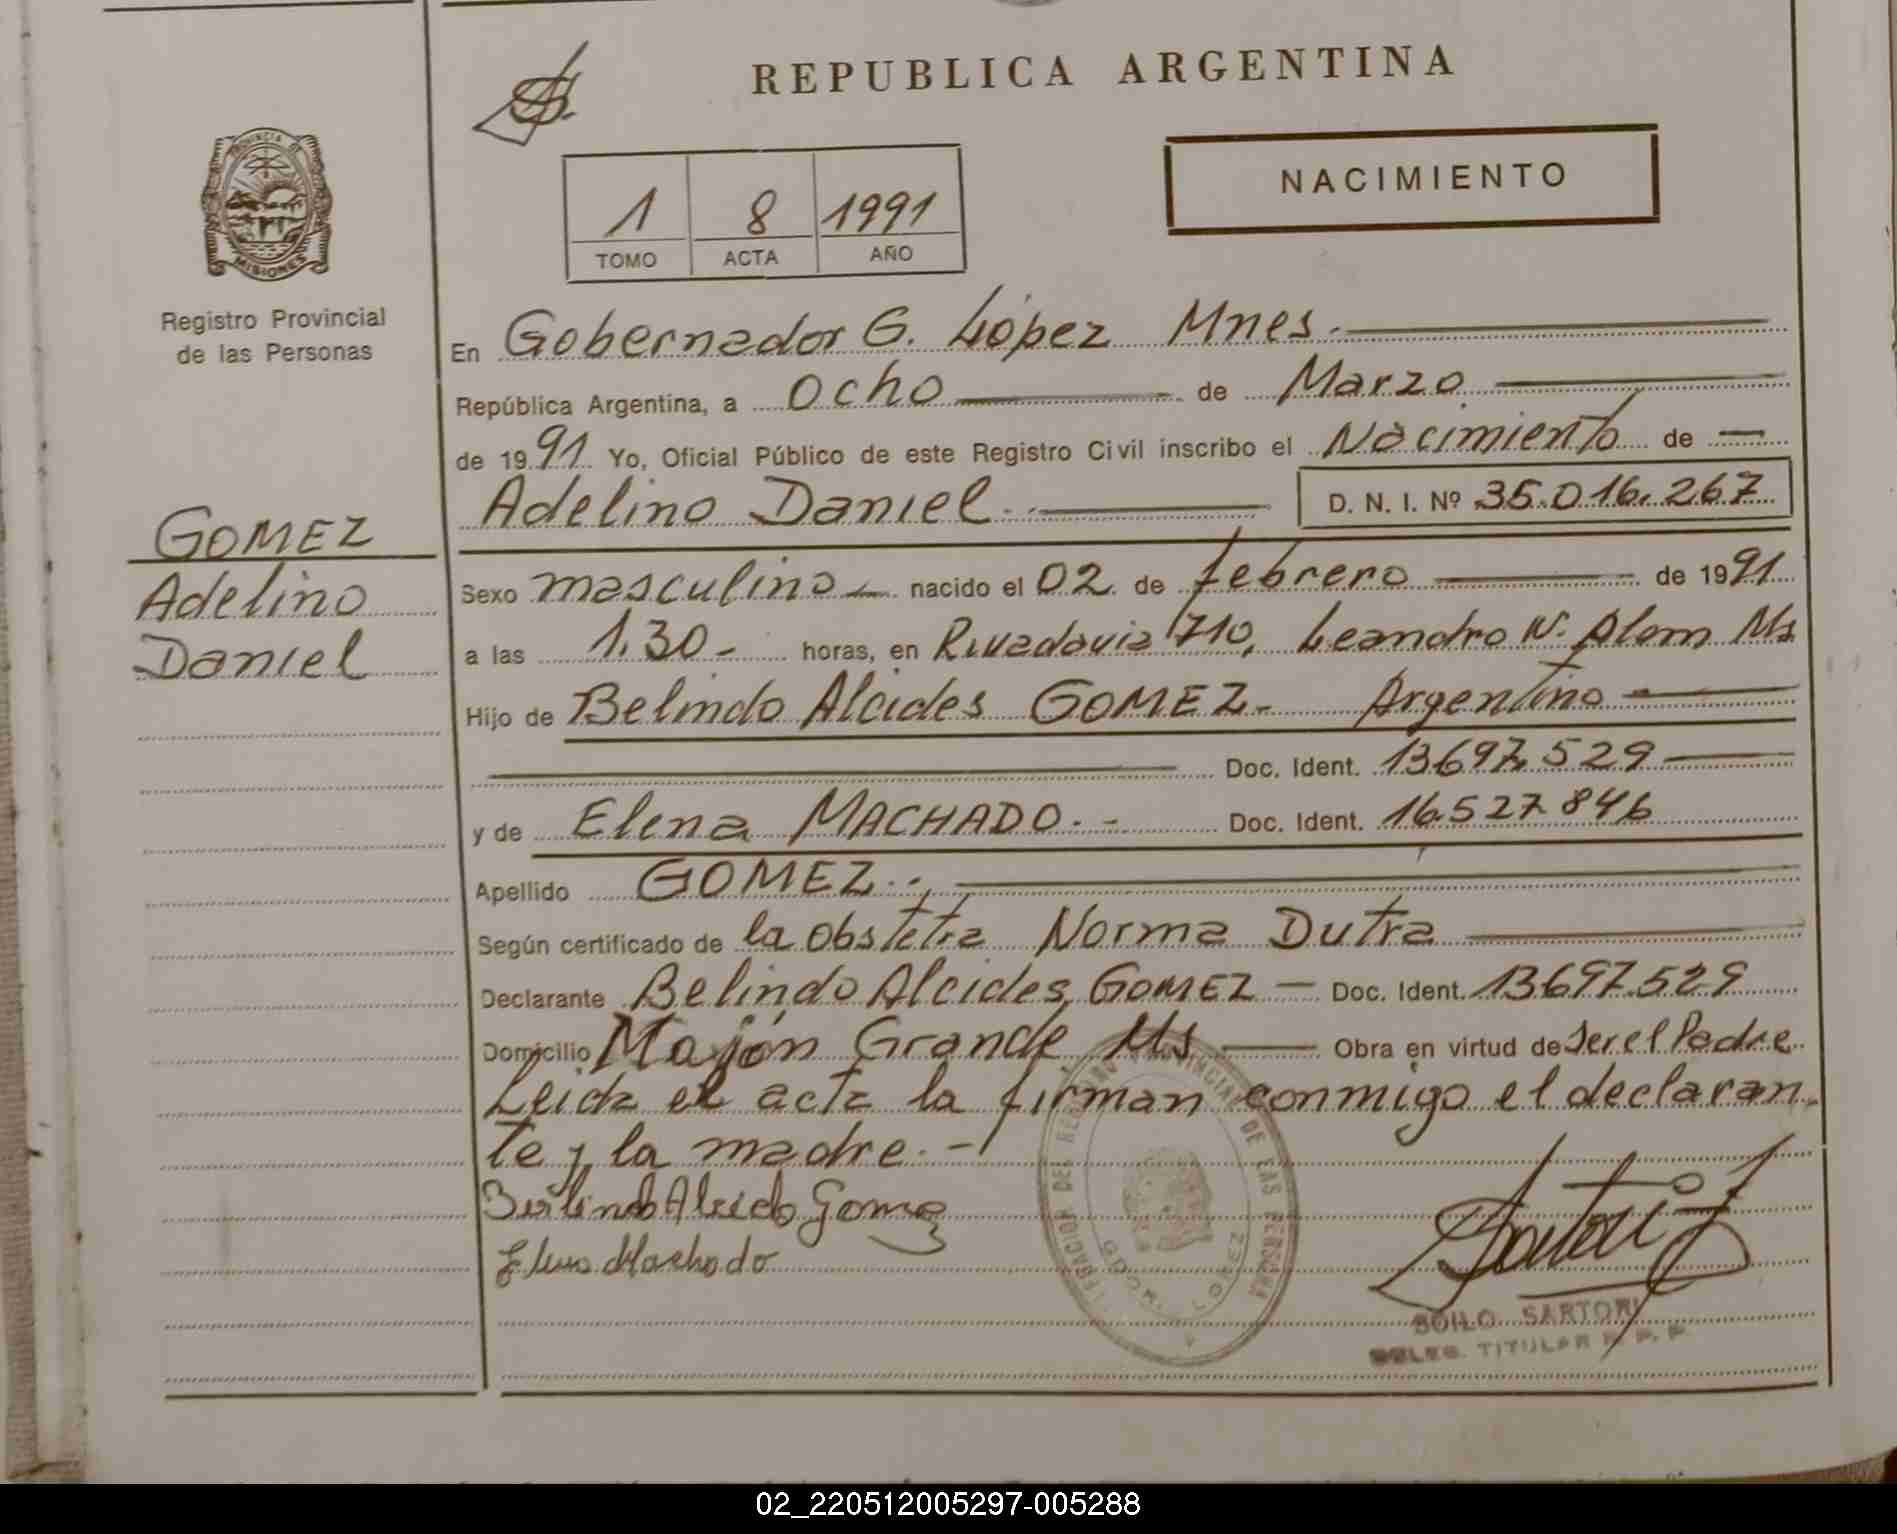 REPUBLICA ARGENTINA
PROVINCIA DE
MISIONES
Registro Provincial
de las Personas
1 8 1991
TOMO ACTA AÑO
NACIMIENTO
En Gobernador G. López Mnes.
República Argentina, a ocho de Marzo
de 1991. Yo, Oficial Público de este Registro Civil inscribo el Nacimiento de
Adelino Daniel. D. N. I. Nº 35.016.267
GOMEZ
Adelino
Daniel
Sexo masculino nacido el 02 de febrero de 1991
a las 1.30 - horas, en Rivadavia 710, Leandro N. Alem Ms
Hijo de Belindo Alcides GOMEZ - Argentino
Doc. Ident. 13697.529
y de Elena MACHADO. - Doc. Ident. 16.527.846
Apellido GOMEZ. -
Según certificado de la obstetra Norma Dutra
Declarante Belindo Alcides GOMEZ - Doc. Ident. 13697.529
Domicilio Mojón Grande Ms Obra en virtud de Ser el Padre
Leida el acta la firman conmigo el declaran-
te y la madre. -
Gomez
Machado
DE LAS PERSONAS
GDOR. LOPEZ
Sartori
SOILO SARTORI
DELEG. TITULAR R. P. P.
02_220512005297-005288